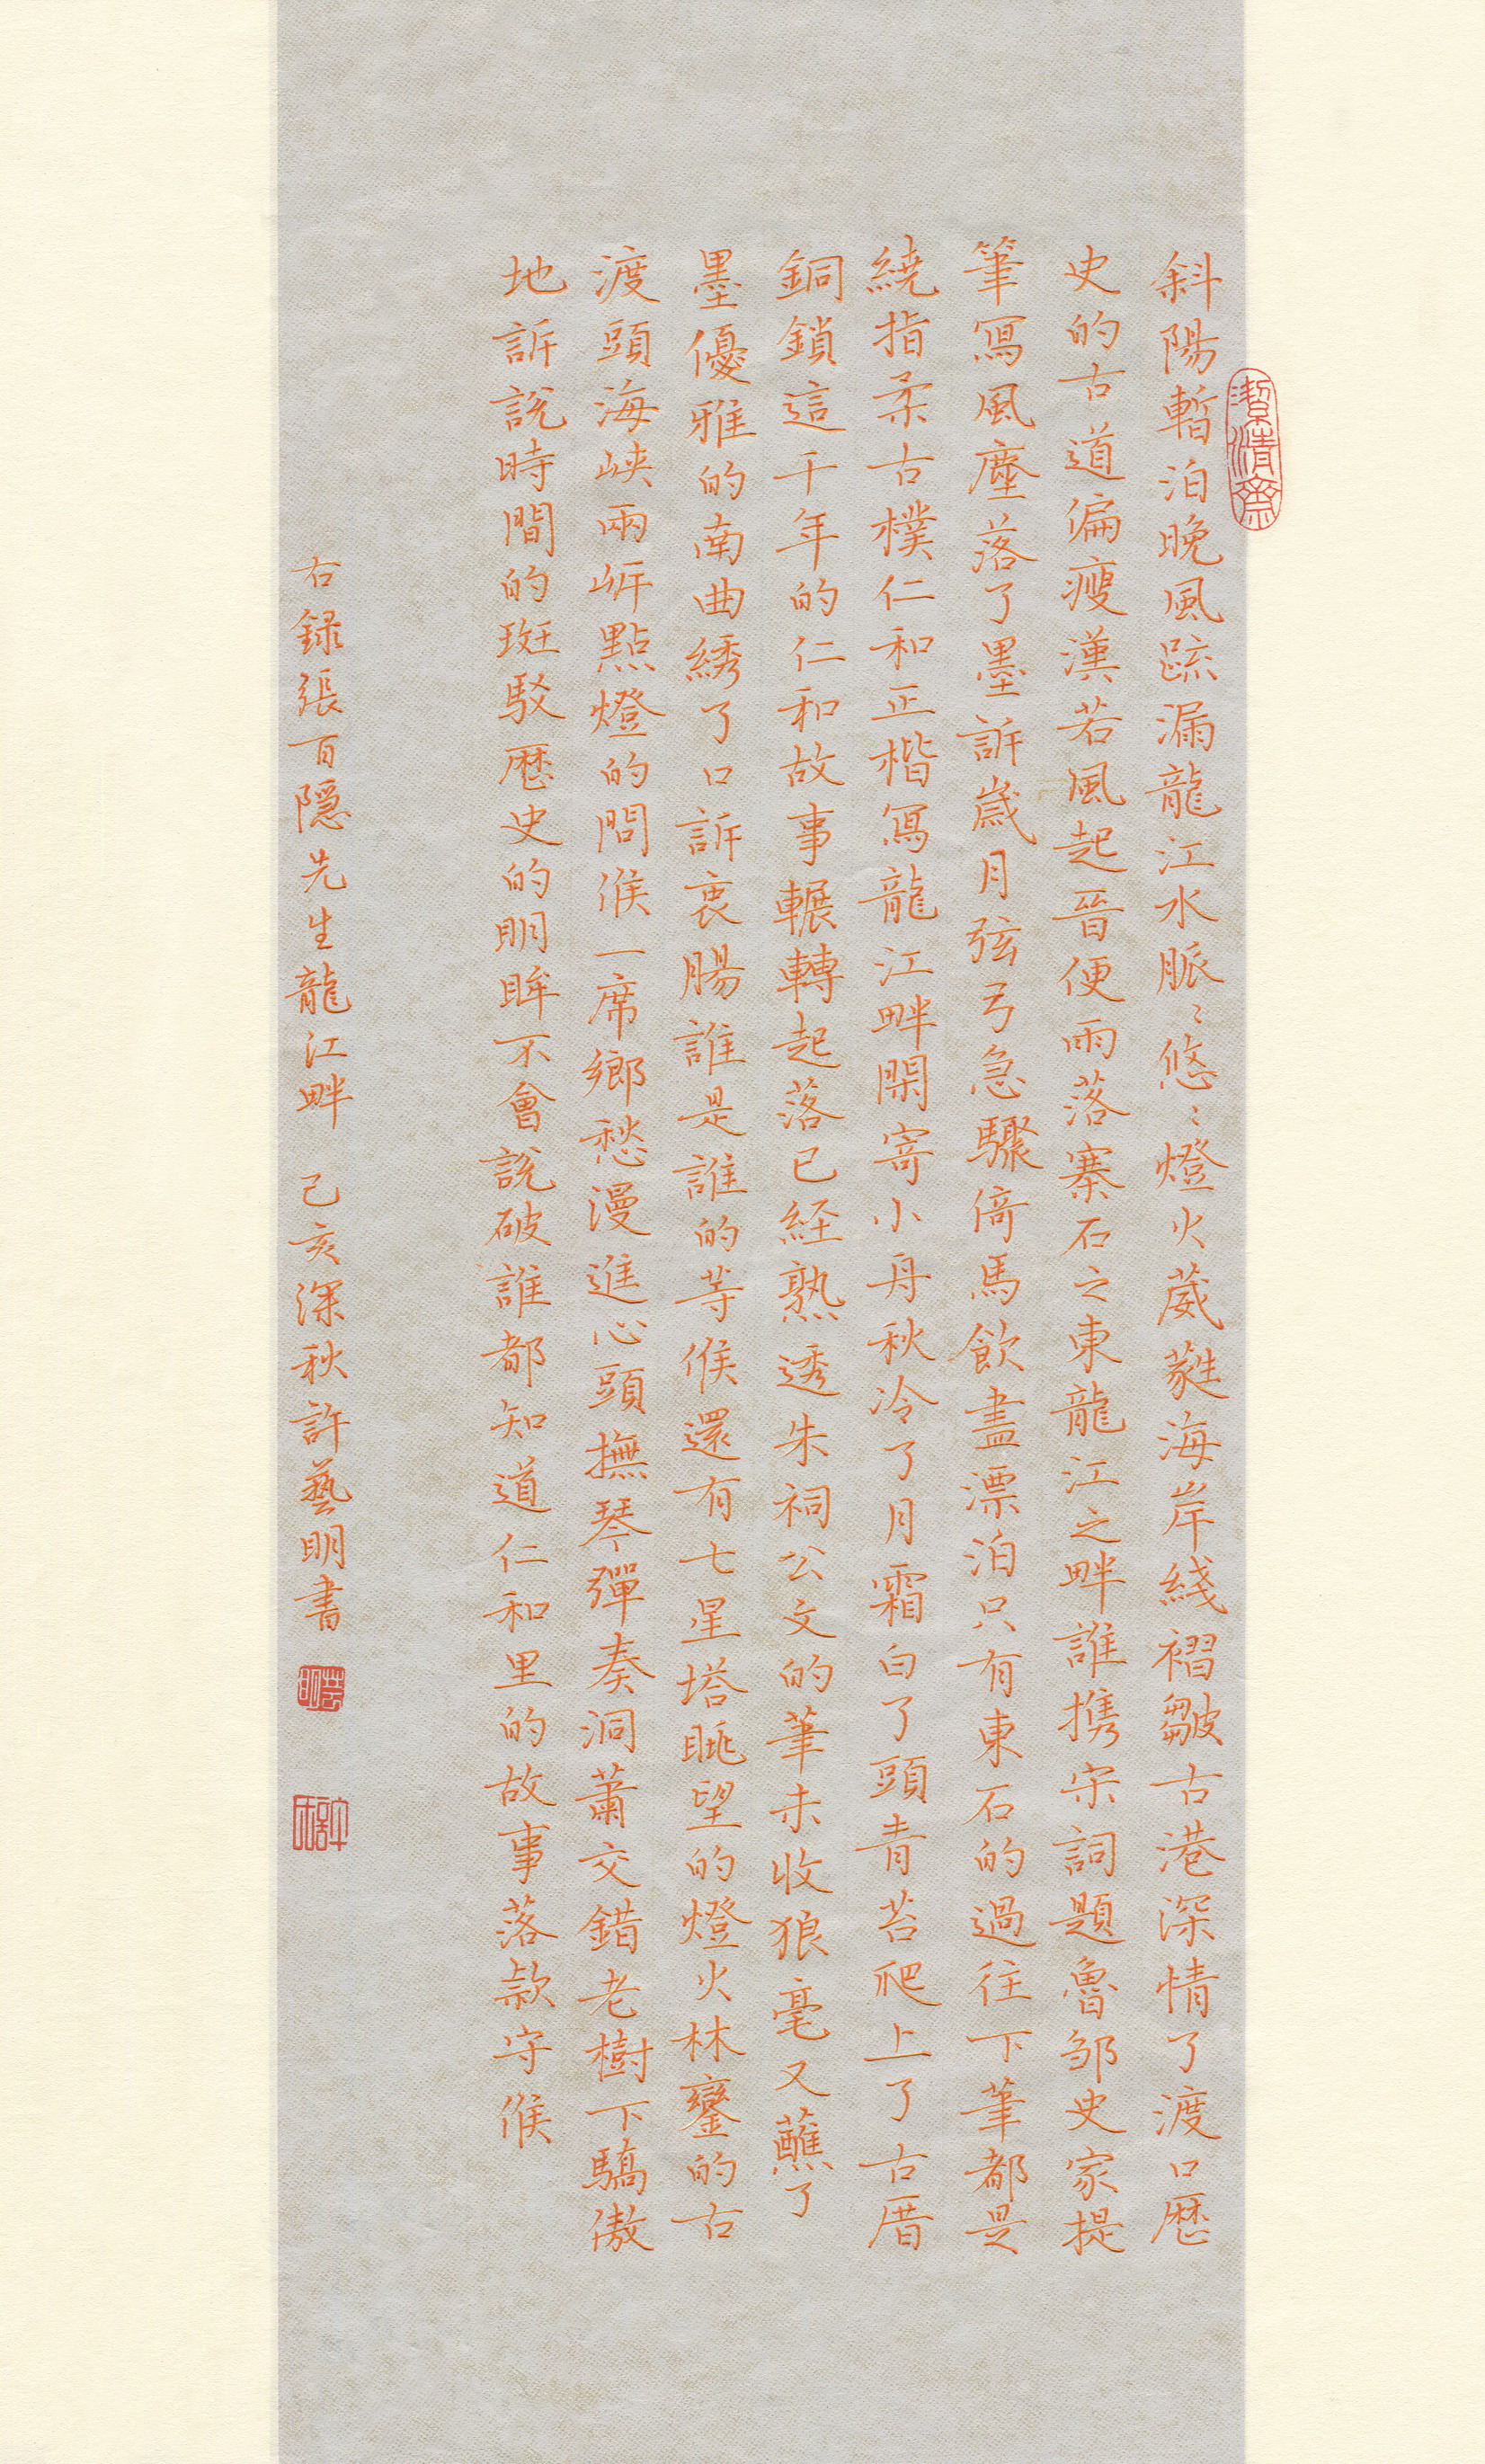 斜陽暫泊晚風疏漏龍江水脈〻悠〻燈火葳蕤海岸綫褶皺古港深情了渡口歷
史的古道偏瘦漢若風起晉便雨落寨石之東龍江之畔誰携宋詞題魯邹史家提
筆寫風塵落了墨訴歲月弦弓急驟倚馬飲盡漂泊只有東石的過往下筆都是
繞指柔古樸仁和正楷寫龍江畔閑寄小舟秋冷了月霜白了頭青苔爬上了古厝
銅鎖這千年的仁和故事輾轉起落已經熟透朱祠公文的筆未收狼毫又蘸了
墨優雅的南曲綉了口訴衷腸誰是誰的等候還有七星塔眺望的燈火林鑾的古
渡頭海峽兩岸點燈的問候一席鄉愁漫進心頭撫琴彈奏洞蕭交錯老樹下驕傲
地訴說時間的斑駁歷史的明眸不會說破誰都知道仁和里的故事落款守候
右録張百隱先生龍江畔 己亥深秋許藝明書
潔清齋
藝明
許氏